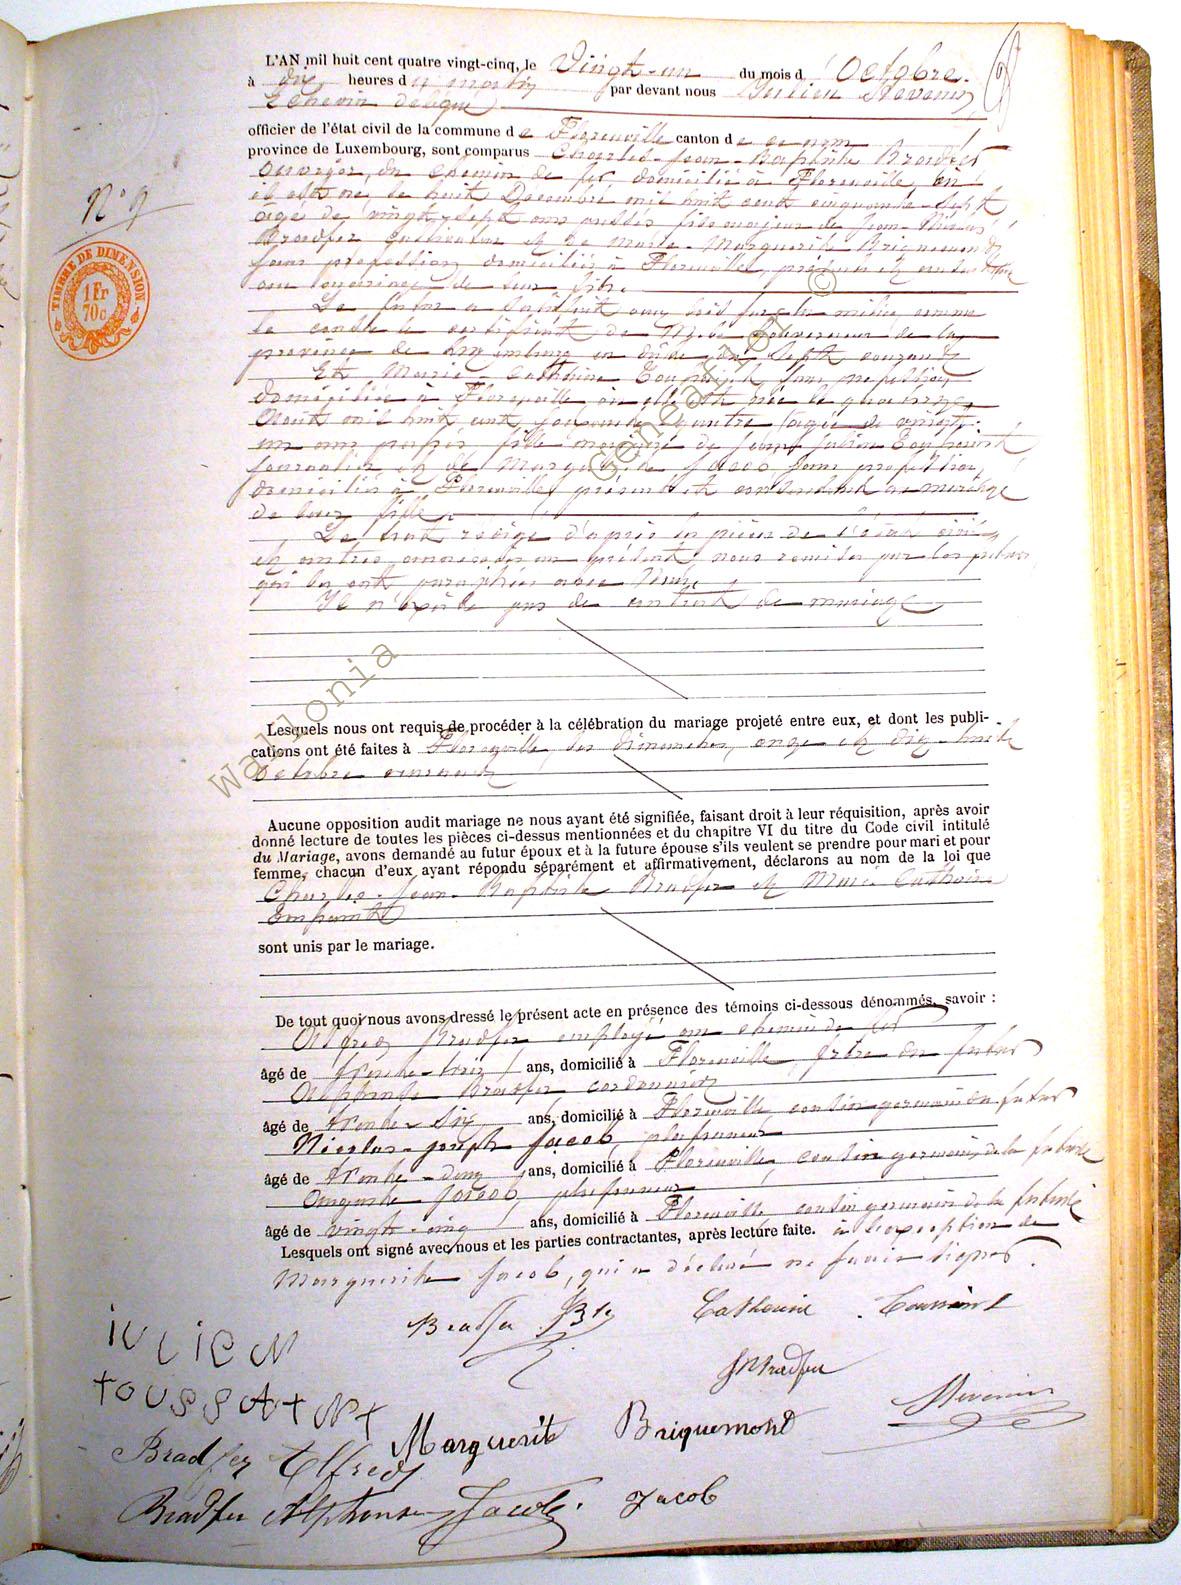 L'AN mil huit cent quatre vingt-cinq, le Vingt-un du mois d'Octobre
à dix heures du matin par devant nous Julien Stevenin
Echevin délégué
officier de l'état civil de la commune de Florenville canton de ce nom
province de Luxembourg, sont comparus Charles-Jean-Baptiste Bradfer
ouvrier du chemin de fer domicilié à Florenville, où
il est né, le huit Décembre mil huit cent cinquante-sept
agé de vingt-sept ans passés fils majeur de Jean-Nicolas
Bradfer cultivateur et de Marie-Marguerite Briquemont
sans profession domiciliés à Florenville, présents et
au mariage de leur fils.
Le futur a satisfait aux lois sur la milice comme
le constate le certificat de Mr le Gouverneur de la
province de Luxembourg en date du sept courant
Et Marie-Catherine Toussaint, sans profession,
domiciliée à Florenville où elle est née le quatorze
Août mil huit cent soixante-quatre agée de vingt-
un ans passés fille majeure de Jean-Julien Toussaint
journalier et de Marguerite Jacob sans profession,
domiciliés à Florenville, présents et consentant au mariage
de leur fille.
Le tout rédigé d'après les pièces de l'état civil
et autres annexées au présent, nous remises par les parties
qui les ont paraphées avec nous,
Il n'existe pas de contrat de mariage
N° 9
TIMBRE DE DIMENSION
1 Fr
70c
Lesquels nous ont requis de procéder à la célébration du mariage projeté entre eux, et dont les publi-
cations ont été faites à Florenville, les dimanches, onze et dix-huit
Octobre courant
Aucune opposition audit mariage ne nous ayant été signifiée, faisant droit à leur réquisition, après avoir
donné lecture de toutes les pièces ci-dessus mentionnées et du chapitre VI du titre du Code civil intitulé
du Mariage, avons demandé au futur époux et à la future épouse s'ils veulent se prendre pour mari et pour
femme, chacun d'eux ayant répondu séparément et affirmativement, déclarons au nom de la loi que
Charles-Jean-Baptiste Bradfer et Marie Catherine
Toussaint
sont unis par le mariage.
De tout quoi nous avons dressé le présent acte en présence des témoins ci-dessous dénommés, savoir :
Alfred Bradfer employé au chemin de fer
âgé de trente-trois ans, domicilié à Florenville, frère du futur
Alphonse Bradfer cordonnier
âgé de trente-six ans, domicilié à Florenville, cousin germain du futur
Nicolas-Joseph Jacob, plafonneur
âgé de trente-deux ans, domicilié à Florenville, cousin germain de la future
Auguste Jacob, plafonneur
âgé de vingt-cinq ans, domicilié à Florenville, cousin germain de la future
Lesquels ont signé avec nous et les parties contractantes, après lecture faite. à l'exception de
Marguerite Jacob, qui a déclaré ne savoir signer.
Bradfer JBte Catherine Toussaint
iuLiEN
tOUSSAiNt
JNBradfer
Stevenin
Marguerite Briquemont
Bradfer Alfred
Bradfer Alphonse Jacob Jacob
Geneanet ©
Wallonia